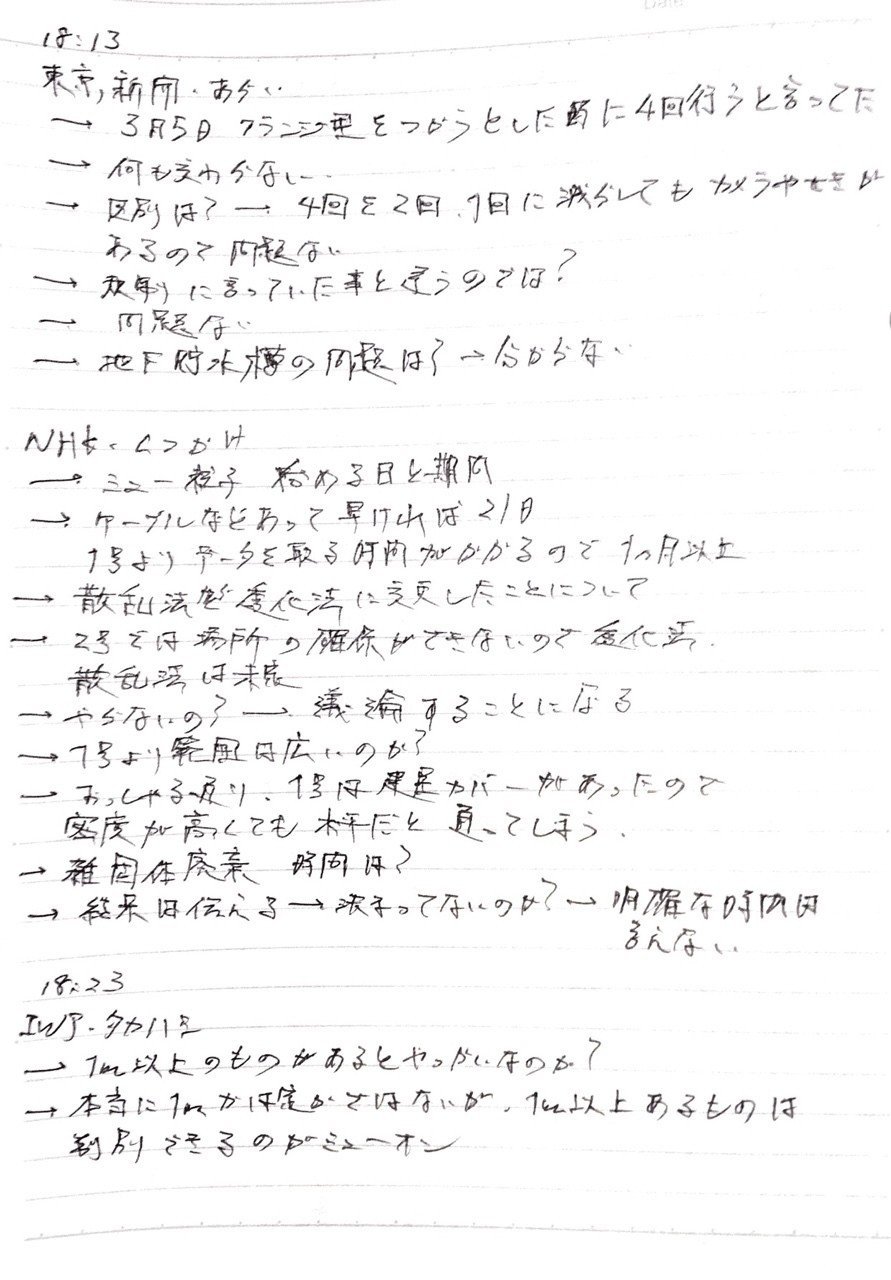 18:13
東京新聞・あらい
→ 3月5日 フランジ型をつかうとした時に4回行うと言ってた
→ 何も変わらない
→ 区別は? → 4回を2回、1回に減らしても カメラやせきが
あるので問題ない
→ 規制に言っていた事と違うのでは?
→ 問題ない
→ 地下貯水槽の問題は? →分からない
NHK・くつかけ
→ ミュー粒子 始める日と期間
→ ケーブルなどあって早ければ21日
1号よりデータを取る時間がかかるので1ヶ月以上
→ 散乱法が透化法に変更したことについて
→ 2号では場所の確保ができないので透化法.
散乱法は未定
→ やらないの? → 議論することになる
→ 1号より範囲は広いのか?
→ おっしゃる通り、1号は建屋カバーがあったので
密度が高くても水平だと通ってしまう.
→ 雑固体廃棄 時間は?
→ 結果は伝える→決まってないのか?→明確な時間は
言えない
18:23
IWJ・タカハシ
→ 1m以上のものがあるとやっかいなのか?
→ 本当に1mかは定かではないが、1m以上あるものは
判別できるのがミューオン